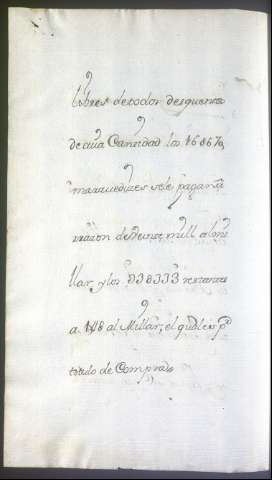 libres de todo desquento
de cuia Cantidad los 168670
maravedizes se le pagan á
razon de Veinte mill al mi
llar, y los 938333 restantes
a al Millar, el qual es pº
tado de Comprais